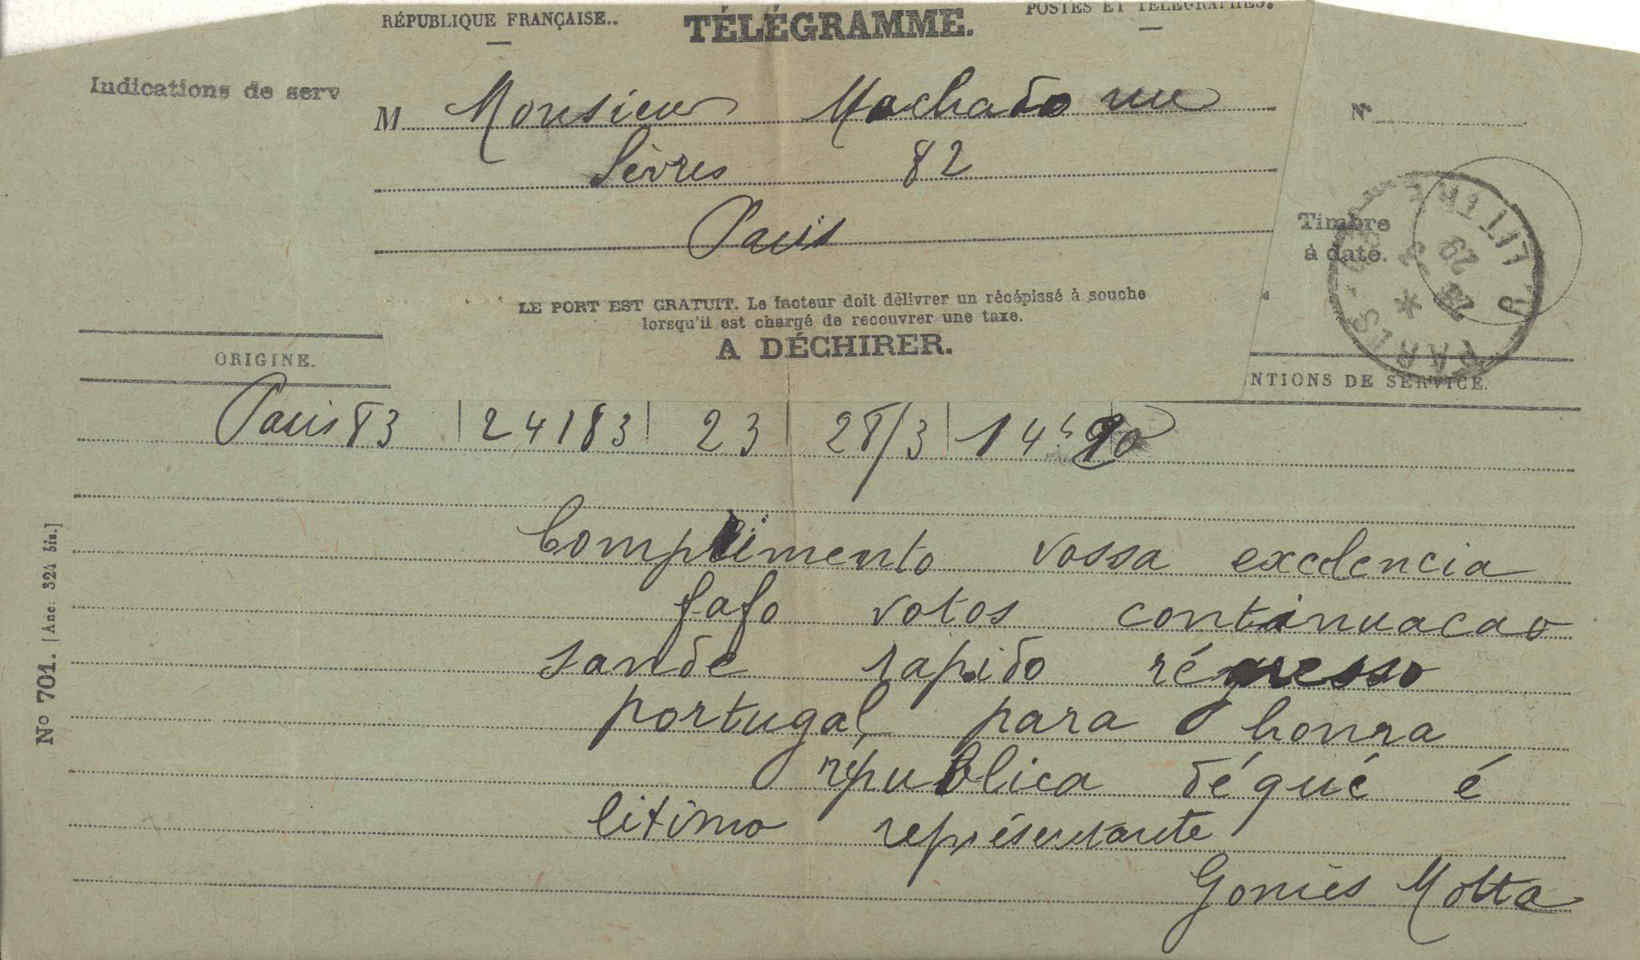 RÉPUBLIQUE FRANÇAISE..
TÉLÉGRAMME.
POSTES ET TÉLÉGRAPHES.
Indications de serv
M Monsieur Machado rue
Sèvres 82
Paris
N°
Timbre
à date.
LE PORT EST GRATUIT. Le facteur doit délivrer un récépissé à souche
lorsqu'il est chargé de recouvrer une taxe.
A DÉCHIRER.
ORIGINE.
NTIONS DE SERVICE.
Paris 83 24183 23 28/3 14h
Complimento vossa excelencia
fafo votos continuacao
sande rapido régresso
portugal para honra
républica dé qué é
litimo représentante
Gomés Motta
N° 701. [Anc. 324 bis.]